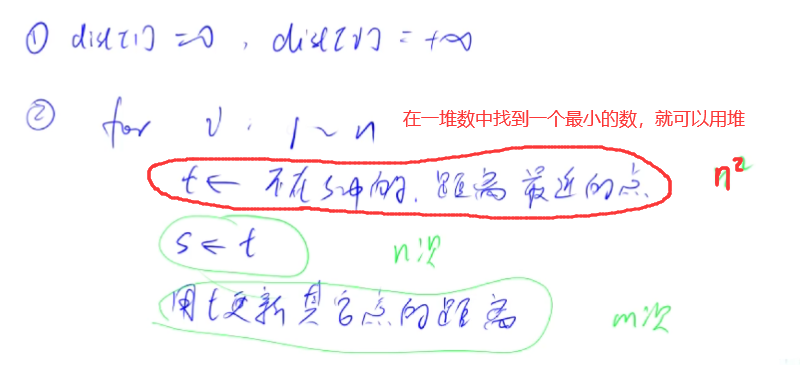 ① dist[1] = 0 , dist[v] = +∞
② for v : 1 ~ n
在一堆数中找到一个最小的数，就可以用堆
t ← 不在s中的，距离最近的点 n²
s ← t n次
用t更新其它点的距离 m次